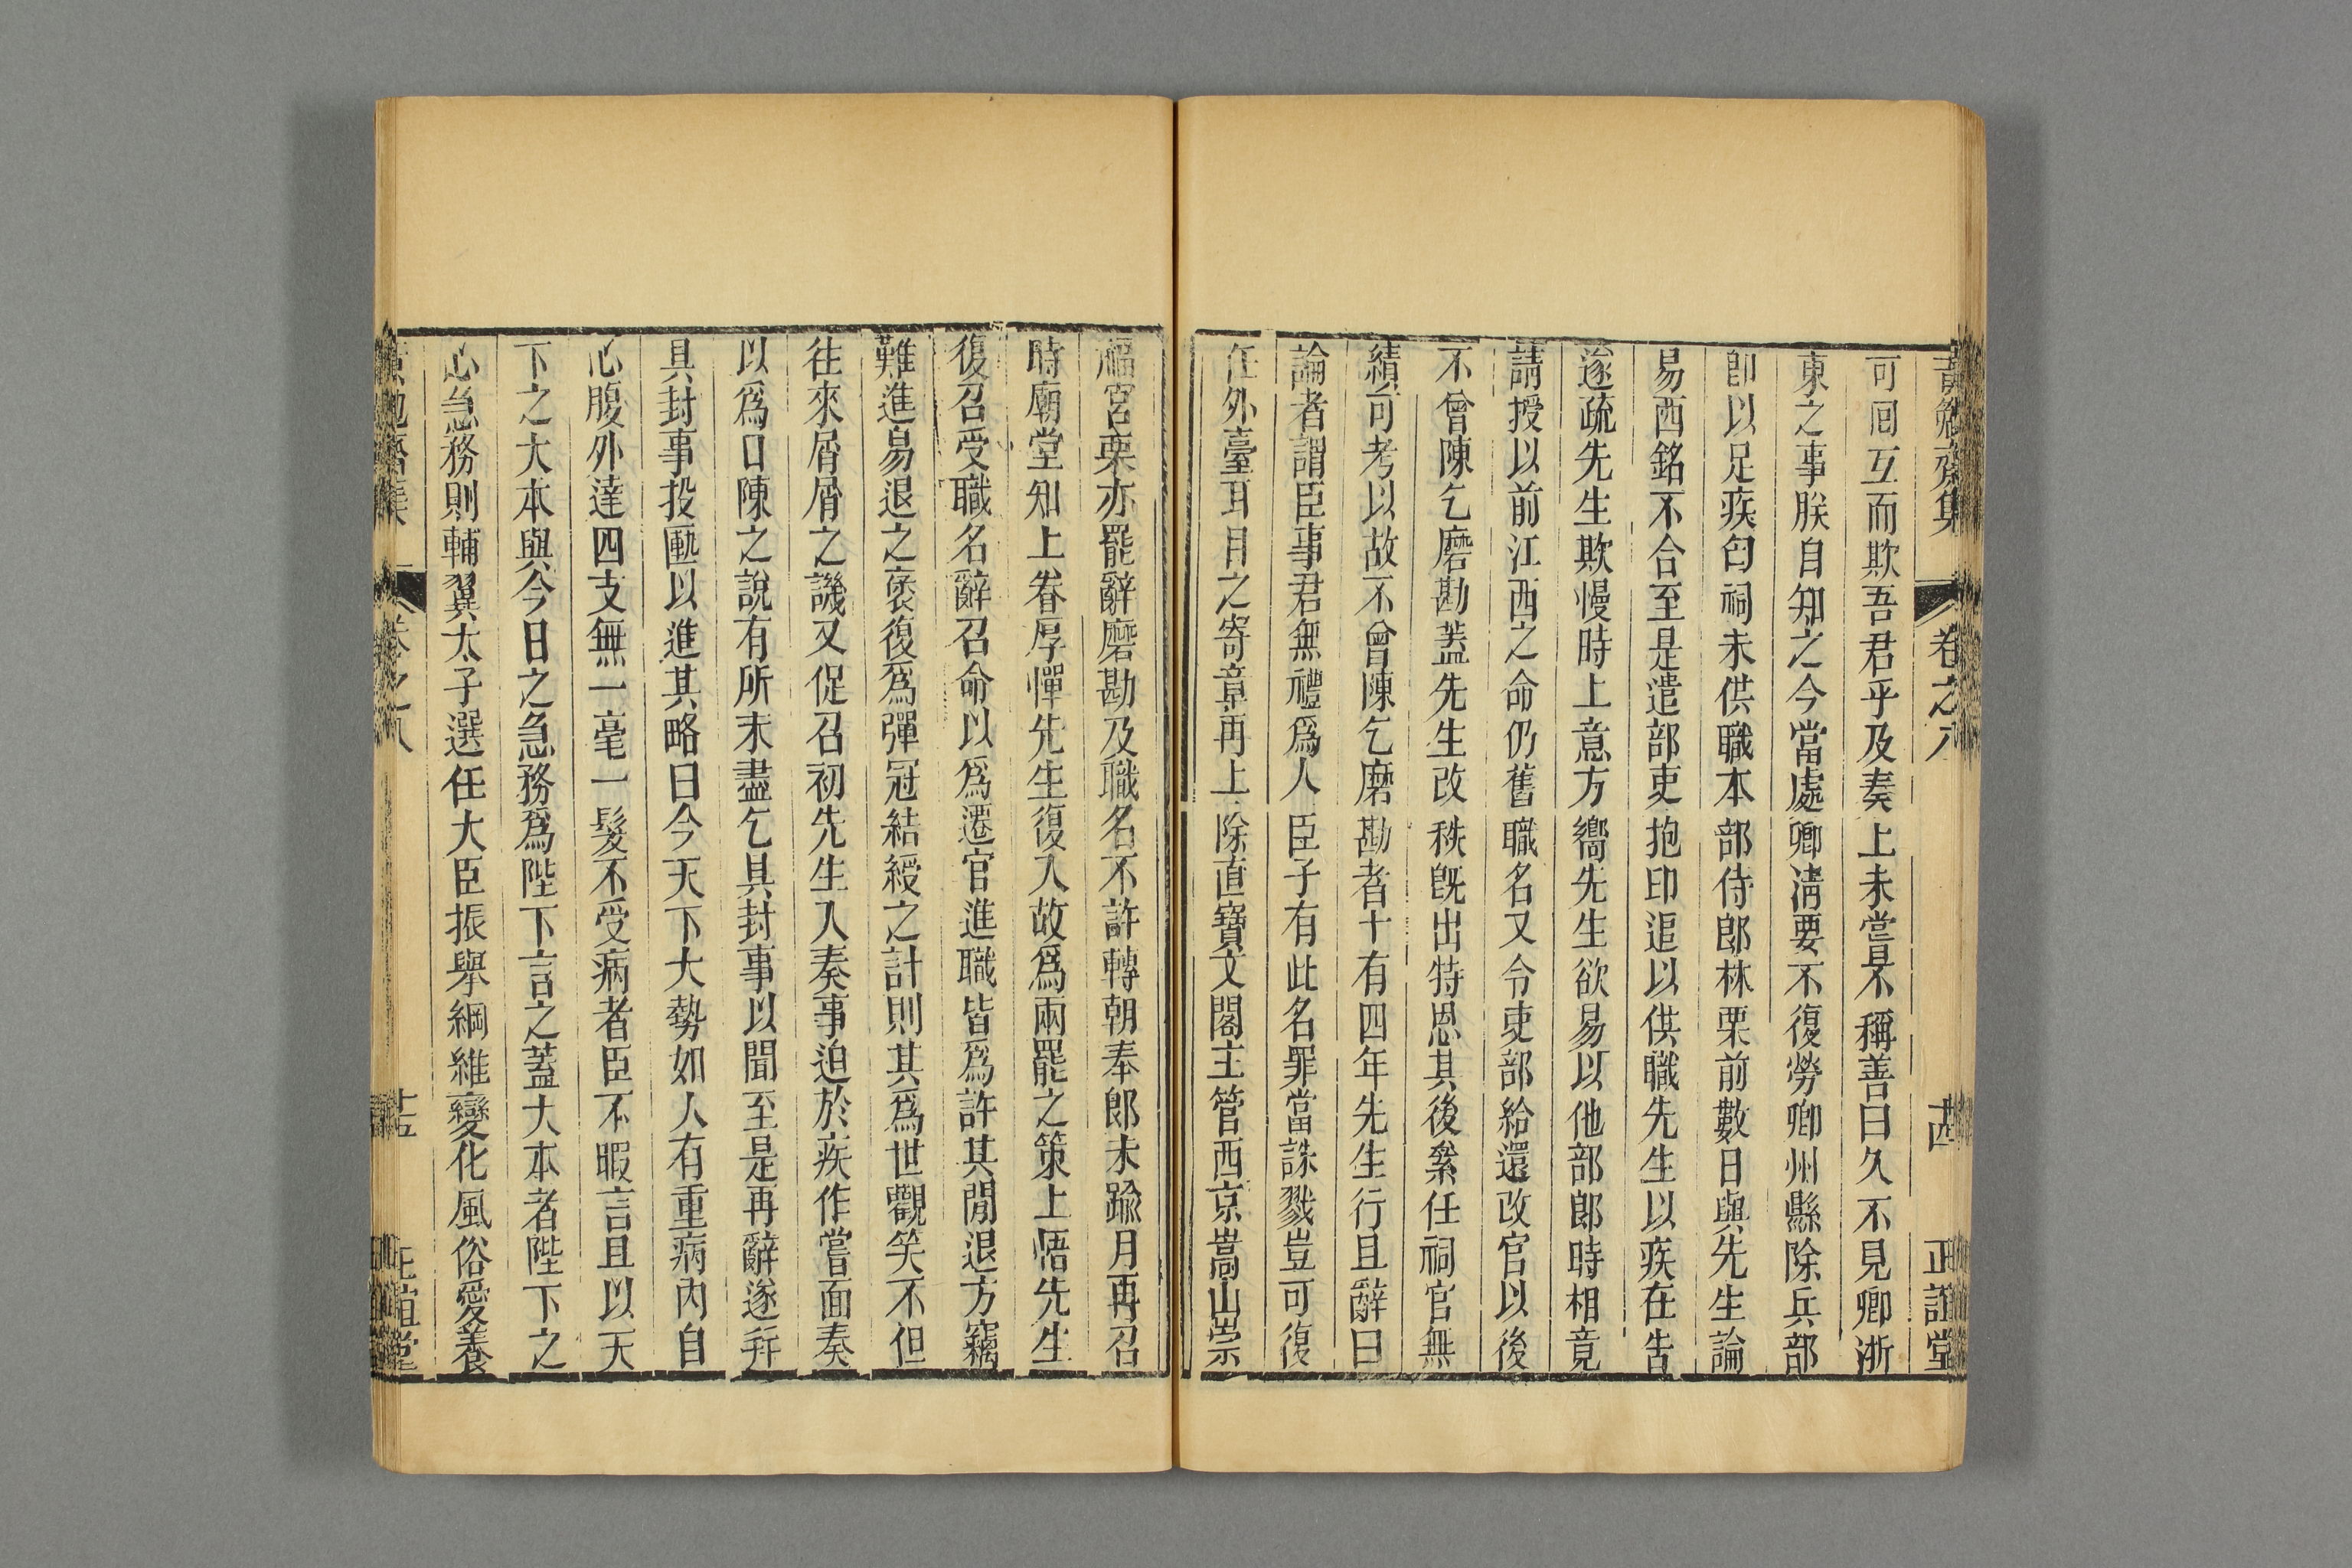 黃勉齋集 卷之八 十四 正誼堂
可回互而欺吾君乎及奏上未嘗不稱善曰久不見卿浙
東之事朕自知之今當處卿清要不復勞卿州縣除兵部
郎以足疾匄祠未供職本部侍郎林栗前數日與先生論
易西銘不合至是遣部吏抱印追以供職先生以疾在告
遂疏先生欺慢時上意方嚮先生欲易以他部郎時相竟
請授以前江西之命仍舊職名又令吏部給還改官以後
不曾陳乞磨勘蓋先生改秩旣出特恩其後累任祠官無
績可考以故不曾陳乞磨勘者十有四年先生行且辭曰
論者謂臣事君無禮爲人臣子有此名罪當誅戮豈可復
任外臺耳目之寄章再上除直寶文閣主管西京嵩山崇
福宮栗亦罷辭磨勘及職名不許轉朝奉郎未踰月再召
時廟堂知上眷厚憚先生復入故爲兩罷之策上悟先生
復召受職名辭召命以爲遷官進職皆爲許其閒退方竊
難進易退之褒復爲彈冠結綬之計則其爲世觀笑不但
往來屑屑之譏又促召初先生入奏事迫於疾作嘗面奏
以爲口陳之說有所未盡乞具封事以聞至是再辭遂幷
具封事投匭以進其略曰今天下大勢如人有重病內自
心腹外達四支無一毫一髮不受病者臣不暇言且以天
下之大本與今日之急務爲陛下言之蓋大本者陛下之
心急務則輔翼太子選任大臣振舉綱維變化風俗愛養
齋集 卷之八 正誼堂